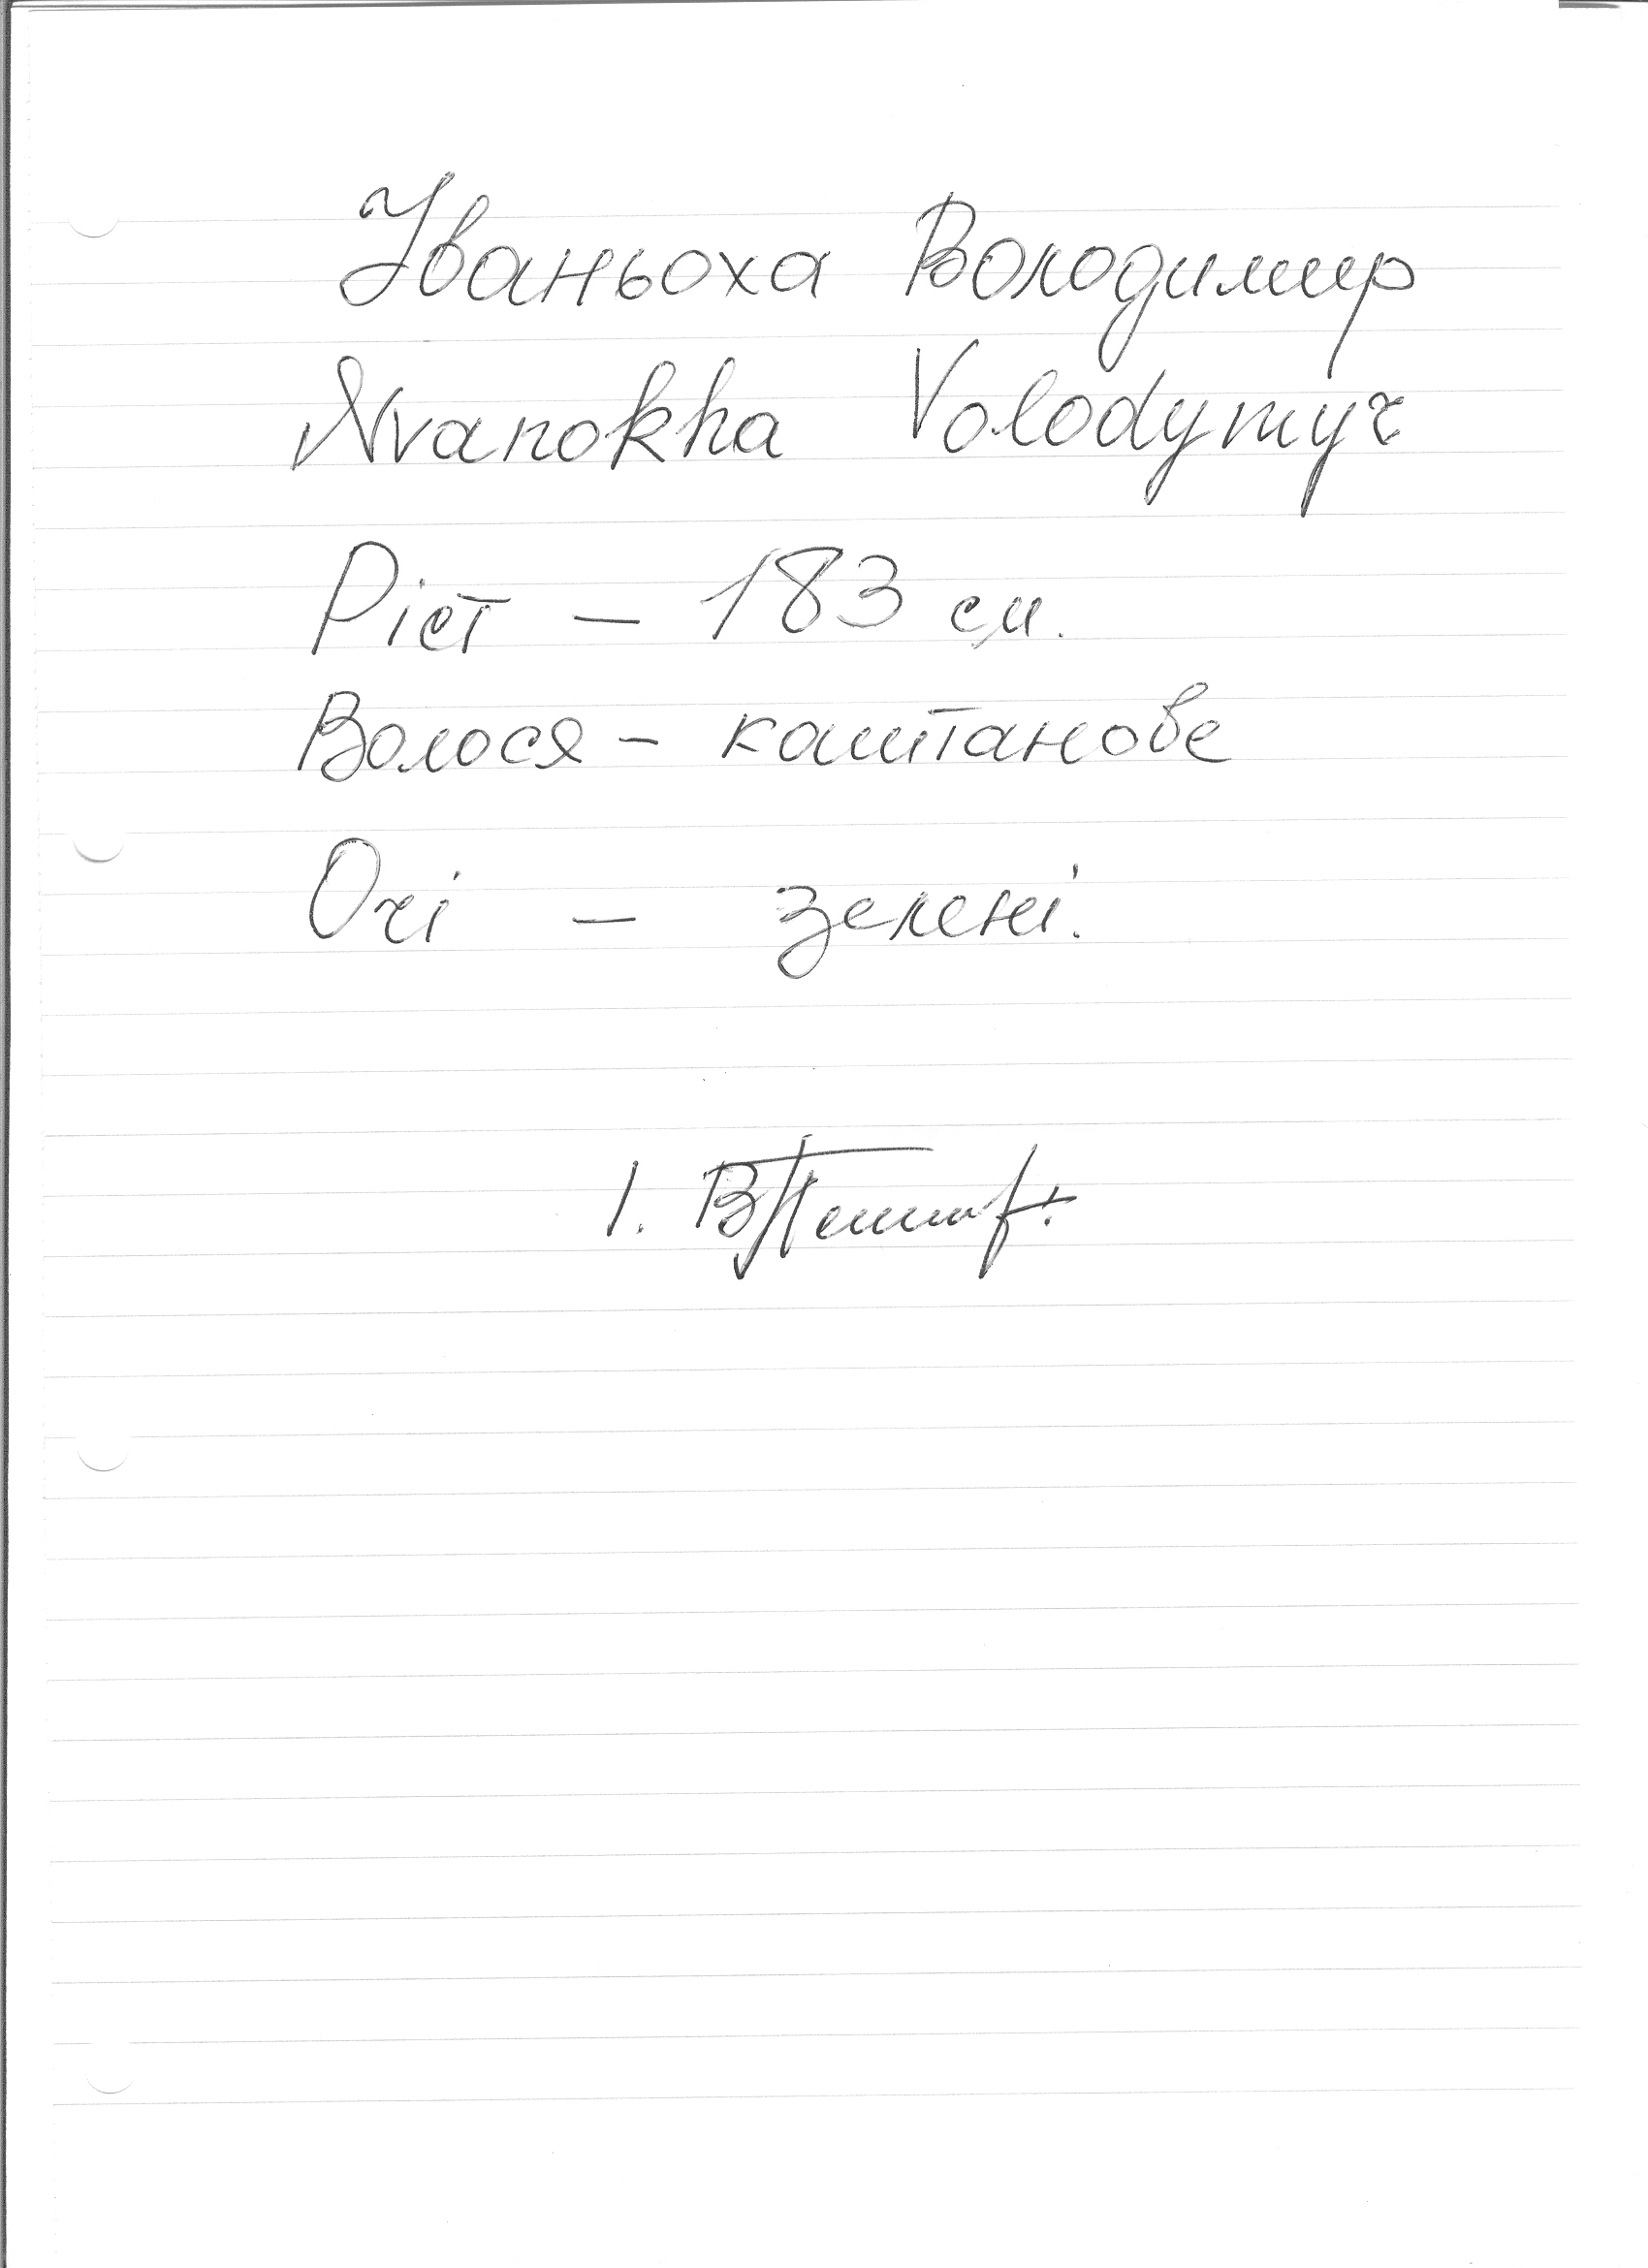 Іваньоха Володимир
Ivanokha Volodymyr
Ріст – 183 см.
Волося – каштанове
Очі – зелені.